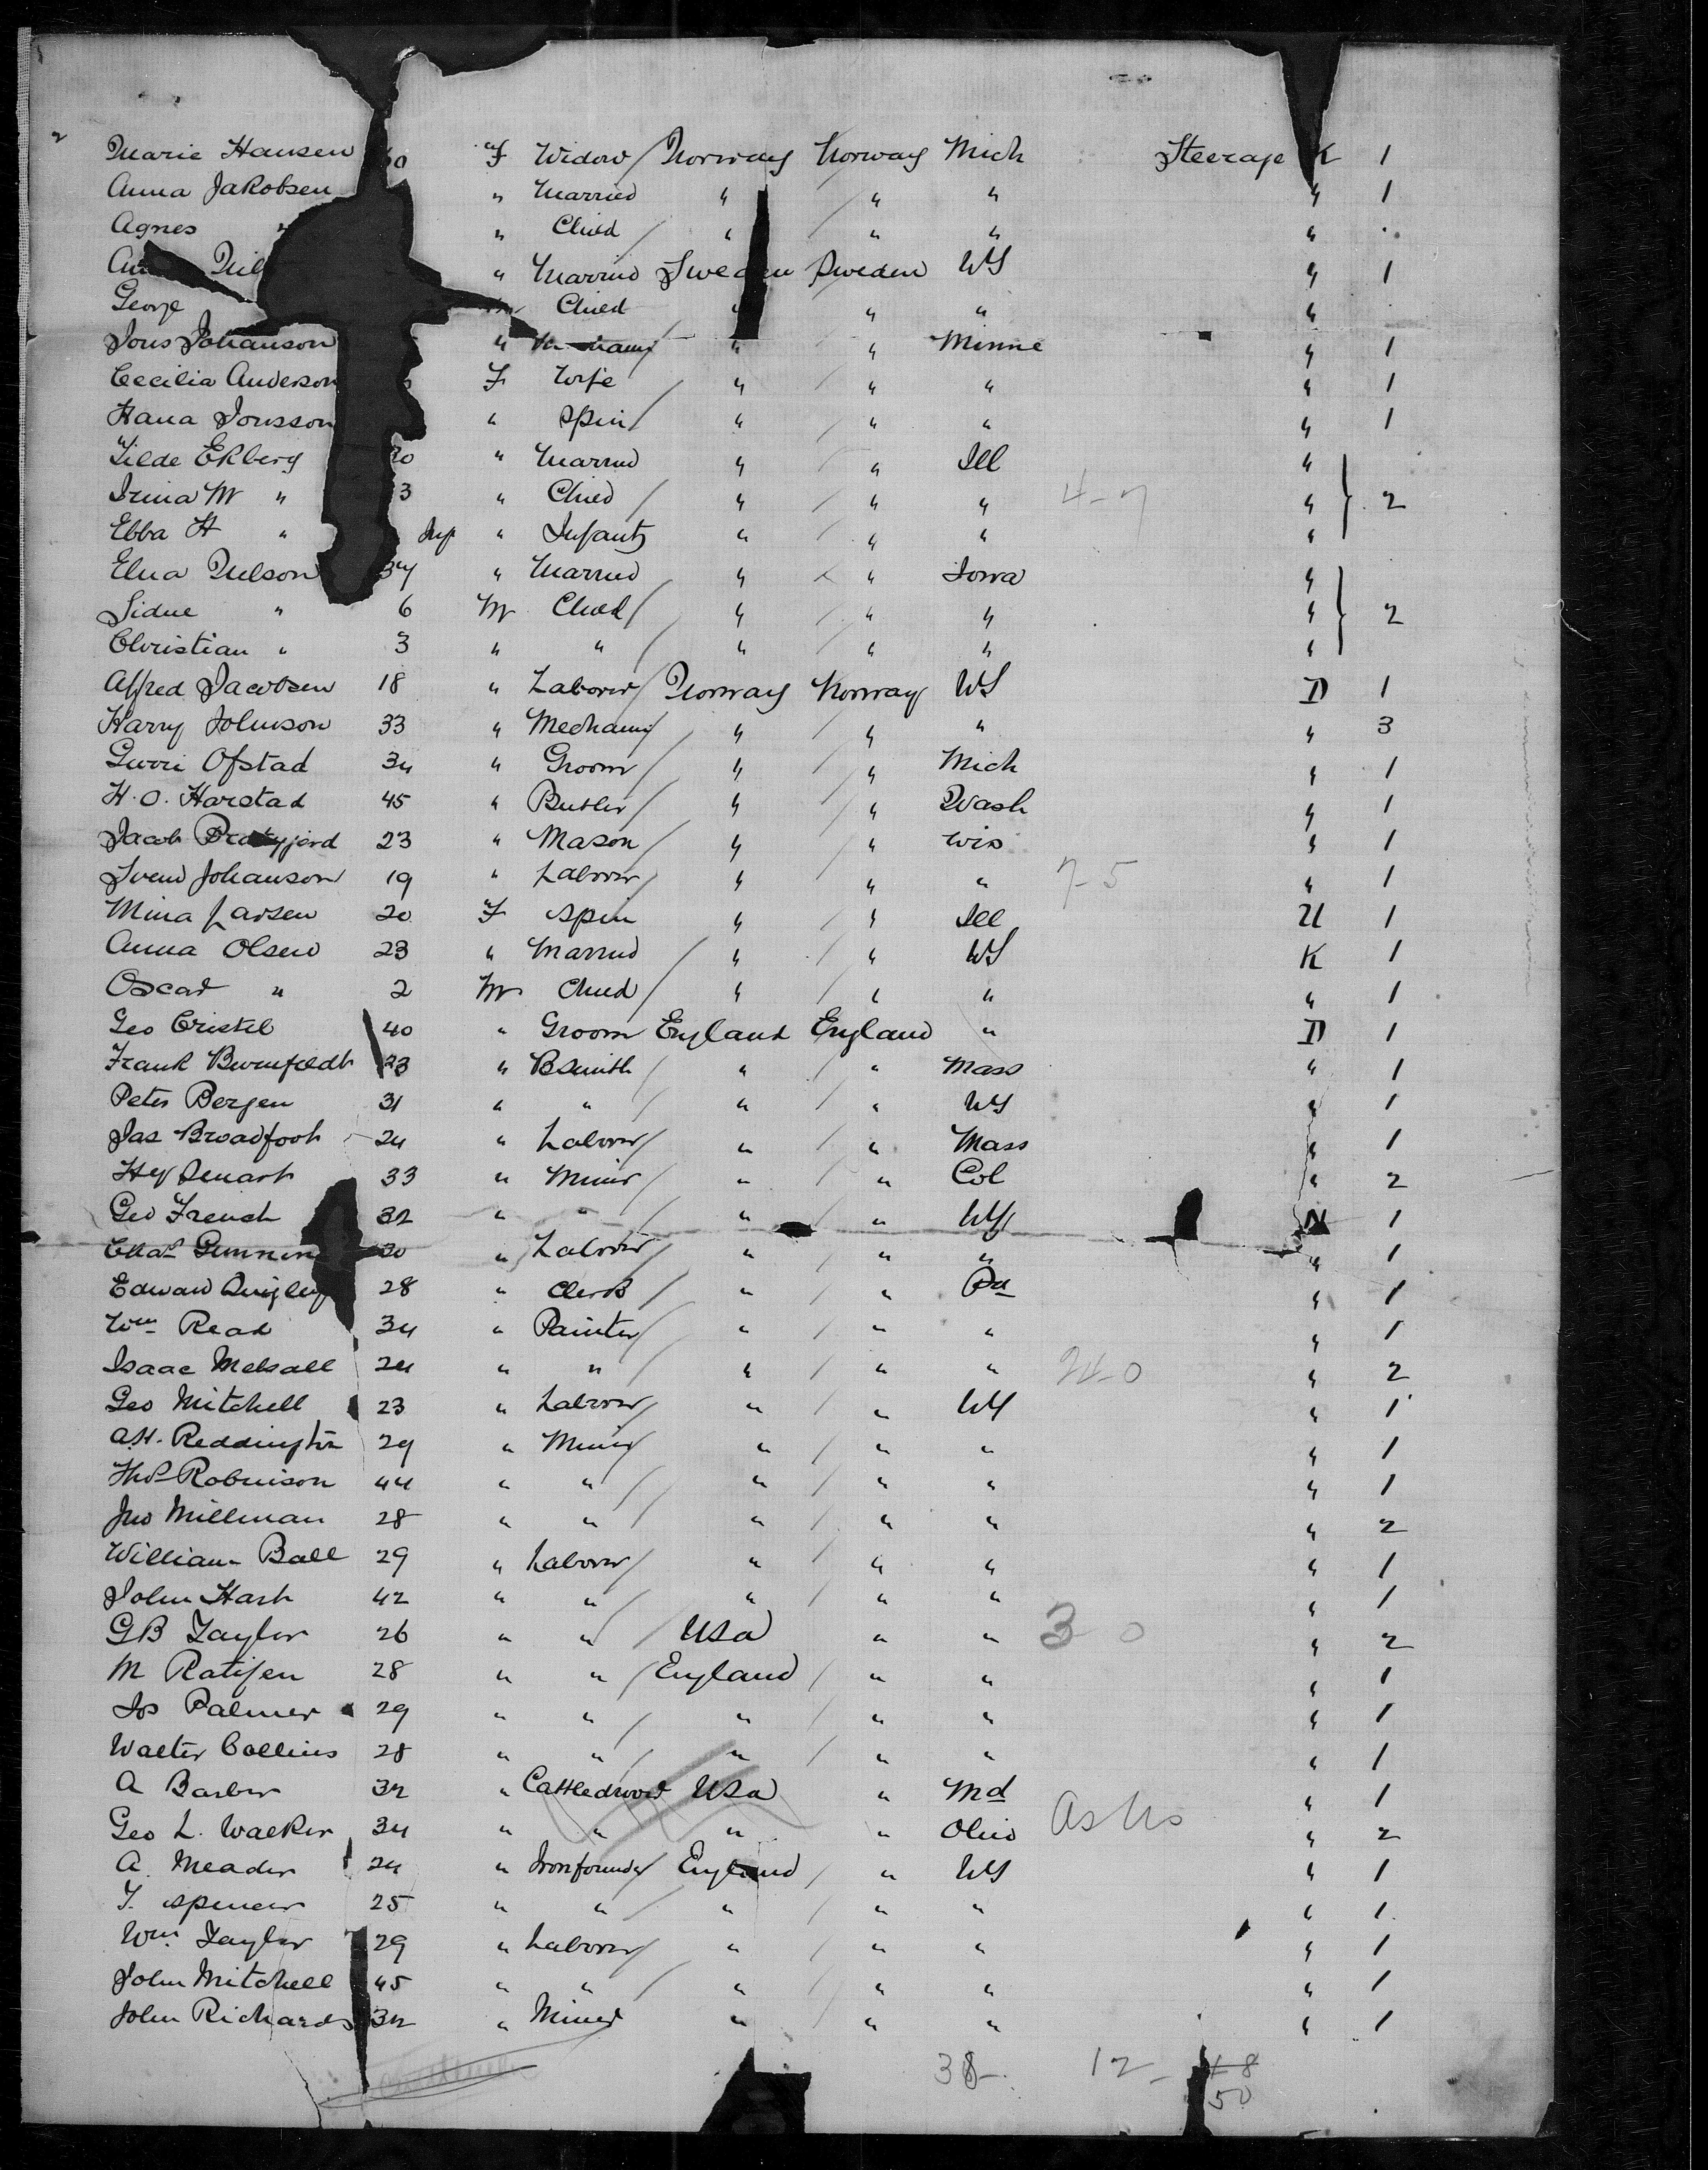 Marie Hansen 60 F Widow Norway Norway Mich Steerage K 1
Anna Jakobsen " Married " " " " 1
Agnes " " Child " " " "
Married Sweden Sweden WS " 1
George Child " " " "
Jons Johanson " " " Minne " 1
Cecilia Anderson F Wife " " " " 1
Hana Jonsson " Spin " " " " 1
Tilde Ekberg 30 " Married " " Ill "
Irina M " 3 " Child " " " 4-7 " 2
Ebba H " Inf " Infant " " " "
Elna Nelson 37 " Married " " Iowa "
Sidne " 6 M Child " " " " 2
Christian " 3 " " " " " "
Alfred Jacobsen 18 " Laborer Norway Norway WS D 1
Harry Johnson 33 " Mechanic " " " " 3
Ofstad 34 " Groom " " Mich " 1
H. O. Harstad 45 " Butler " " Wash " 1
Jacob 23 " Mason " " Wis " 1
Svend Johanson 19 " Laborer " " " 7-5 " 1
Mina Larsen 20 F Spin " " Ill U 1
Anna Olsen 23 " Married " " WS K 1
Oscar " 2 M Child " " " " 1
Geo Cristel 40 " Groom England England " D 1
Frank 23 " Bsmith " " Mass " 1
Peter Bergen 31 " " " " WS " 1
Jas Broadfoot 24 " Laborer " " Mass " 1
Hy 33 " Miner " " Col " 2
Geo French 32 " " " " WS N 1
Chas 20 " Laborer " " " " 1
Edward Quigley 28 " Clerk " " Pa " 1
Wm Read 34 " Painter " " " " 1
Isaac 24 " " " " " 24-0 " 2
Geo Mitchell 23 " Laborer " " WS " 1
A.H. Reddington 29 " Miner " " " " 1
Thos Robinson 44 " " " " " " 1
Jno Millman 28 " " " " " " 2
William Ball 29 " Laborer " " " " 1
John Hart 42 " " " " " " 1
GB Taylor 26 " " USA " " 3 0 " 2
M 28 " " England " " " 1
Jos Palmer 29 " " " " " " 1
Walter Collins 28 " " " " " " 1
A Barber 32 " Cattledrover USA " Md " 1
Geo L. Walker 34 " " " " Ohio " 2
A. Meader 24 " Ironfounder England " WS " 1
T. Spencer 25 " " " " " " 1
Wm. Taylor 29 " Laborer " " " " 1
John Mitchell 45 " " " " " " 1
John Richards 32 " Miner " " " " 1
38- 12- 48
50